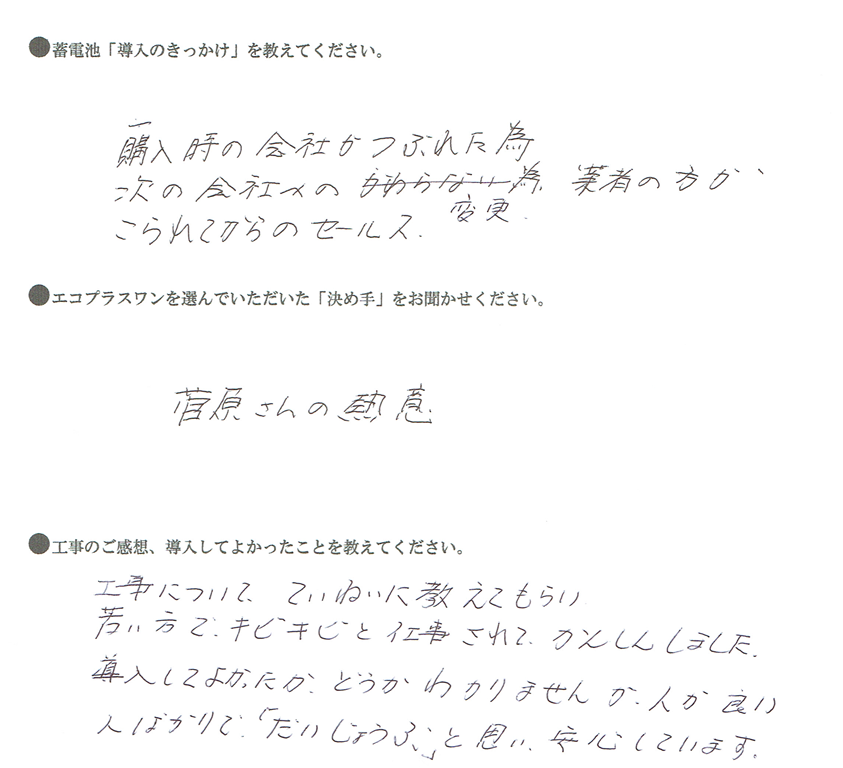 ●蓄電池「導入のきっかけ」を教えてください。
購入時の会社がつぶれた為
次の会社への かわらない為 業者の方が、
変更.
こられてからのセールス.
●エコプラスワンを選んでいただいた「決め手」をお聞かせください。
菅原さんの熱意
●工事のご感想、導入してよかったことを教えてください。
工事について、ていねいに教えてもらい
若い方で、キビキビと仕事されて、かんしんしました.
導入してよかったか、どうかわかりませんが、人が良い
人ばかりで、「だいじょうぶ」と思い、安心しています.